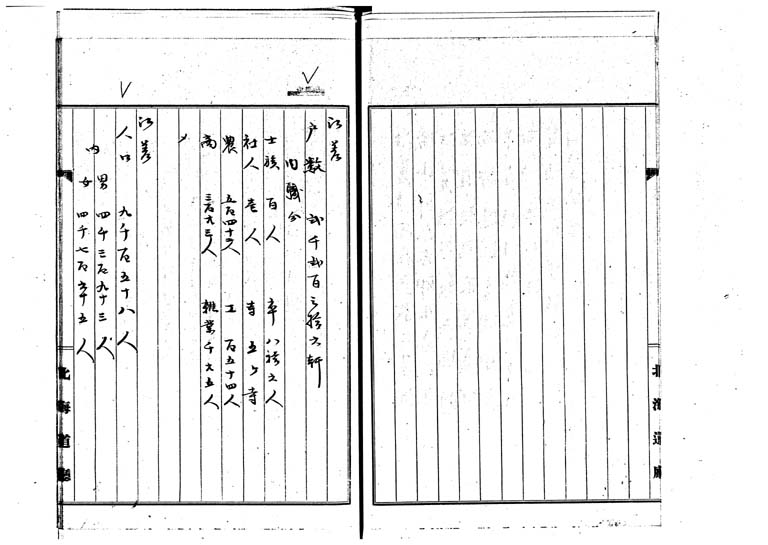 江差
戸数 弐千弐百三拾六軒
内職分
士族 百人 卒 八拾六人
社人 壱人 寺 五ケ寺
農 五百四十人 工 百五十四人
商 三百九三人 雑業 千六五人
〆
江差
人口 九千百五十八人
男 四千三百九十三人
内
女 四千七百六十五人
北海道廳
北海道廳